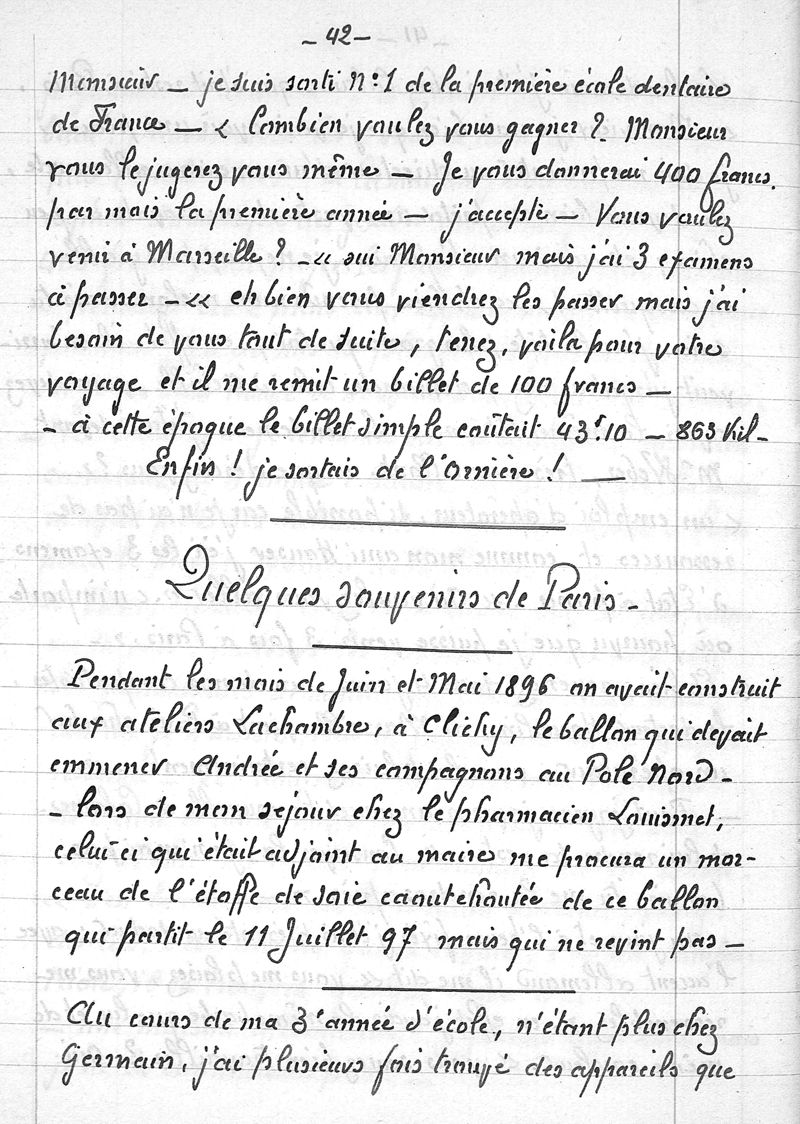 - 42 -
Monsieur - je suis sorti N°1 de la première école dentaire
de France - « Combien voulez vous gagner ? Monsieur
vous le jugerez vous même - Je vous donnerai 400 francs.
par mois la première année - j'accepte - Vous voulez
venir à Marseille ? - « oui Monsieur mais j'ai 3 examens
à passer - « eh bien vous viendrez les passer mais j'ai
besoin de vous tout de suite, tenez, voila pour votre
voyage et il me remit un billet de 100 francs -
- à cette époque le billet simple coûtait 43f.10 - 863 Kil -
Enfin ! je sortais de l'Ornière ! -
Quelques souvenirs de Paris -
Pendant les mois de Juin et Mai 1896 on avait construit
aux ateliers Lachambre, à Clichy, le ballon qui devait
emmener Andrée et ses compagnons au Pole Nord -
- lors de mon sejour chez le pharmacien Louismet,
celui-ci qui était adjoint au maire me procura un mor-
ceau de l'étoffe de soie caoutchoutée de ce ballon
qui partit le 11 Juillet 97 mais qui ne revint pas -
Au cours de ma 3e année d'école, n'étant plus chez
Germain, j'ai plusieurs fois trouvé des appareils que